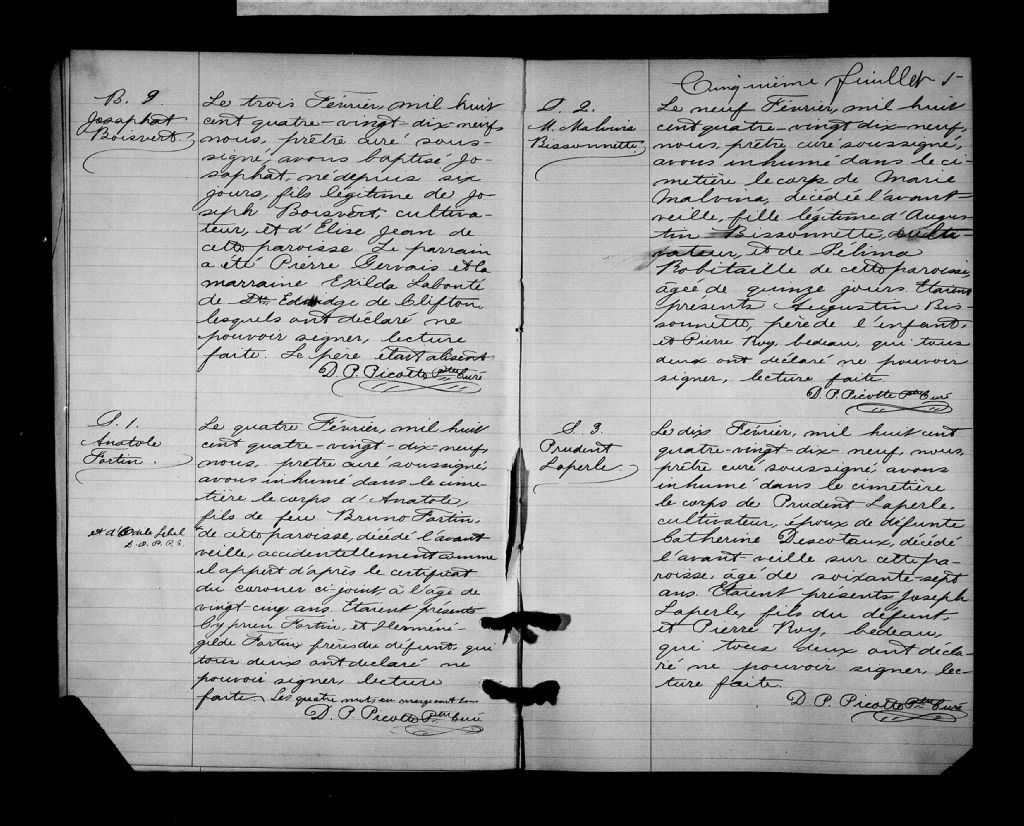 B. 9.
Josaphat
Boisvert.
Le trois Février, mil huit
cent quatre-vingt-dix-neuf,
nous, prêtre curé sous-
signé, avons baptisé Jo-
saphat, né depuis six
jours, fils légitime de Jo-
seph Boisvert, cultiva-
teur, et d'Elise Jean de
cette paroisse. Le parrain
a été Pierre Gervais et la
marraine Exilda Labonté
de St. Edwidge de Clifton,
lesquels ont déclaré ne
pouvoir signer, lecture
faite. Le père était absent
D. P. Picotte Ptre Curé
S. 1.
Anatole
Fortin.
et d'Odile Lebel
Le quatre Février, mil huit
cent quatre-vingt-dix-neuf,
nous, prêtre curé soussigné,
avons inhumé dans le cime-
tière le corps d'Anatole,
fils de feu Bruno Fortin,
de cette paroisse, décédé l'avant
veille, accidentellement comme
il appert d'après le certificat
du coroner ci-joint, à l'âge de
vingt-cinq ans. Etaient présents
Cyprien Fortin, et Herméné-
gilde Fortin, frères du défunt, qui
tous deux ont déclaré ne
pouvoir signer, lecture
faite. Les quatre mots en marge sont bons
D. P. Picotte Ptre Curé
Cinquième feuillet 5
S. 2.
M. Malvina
Bissonnette.
Le neuf Février, mil huit
cent quatre-vingt dix-neuf,
nous, prêtre curé soussigné,
avons inhumé dans le ci-
metière le corps de Marie
Malvina, décédée l'avant
veille, fille légitime d'Augus-
tin Bissonnette, culti
vateur, et de Célima
Robitaille de cette paroisse,
âgée de quinze jours. Etaient
présents Augustin Bis-
sonnette, père de l'enfant,
et Pierre Roy, bedeau, qui tous
deux ont déclaré ne pouvoir
signer, lecture faite.
D. P. Picotte Ptre Curé
S. 3.
Prudent
Laperle.
Le dix Février, mil huit cent
quatre-vingt-dix-neuf, nous,
prêtre curé soussigné avons
inhumé dans le cimetière
le corps de Prudent Laperle,
cultivateur, époux de défunte
Catherine Descoteaux, décédé
l'avant-veille sur cette pa-
roisse, âgé de soixante-sept
ans. Etaient présents Joseph
Laperle, fils du défunt,
et Pierre Roy, bedeau,
qui tous deux ont décla-
ré ne pouvoir signer, lec-
ture faite.
D. P. Picotte Ptre Curé